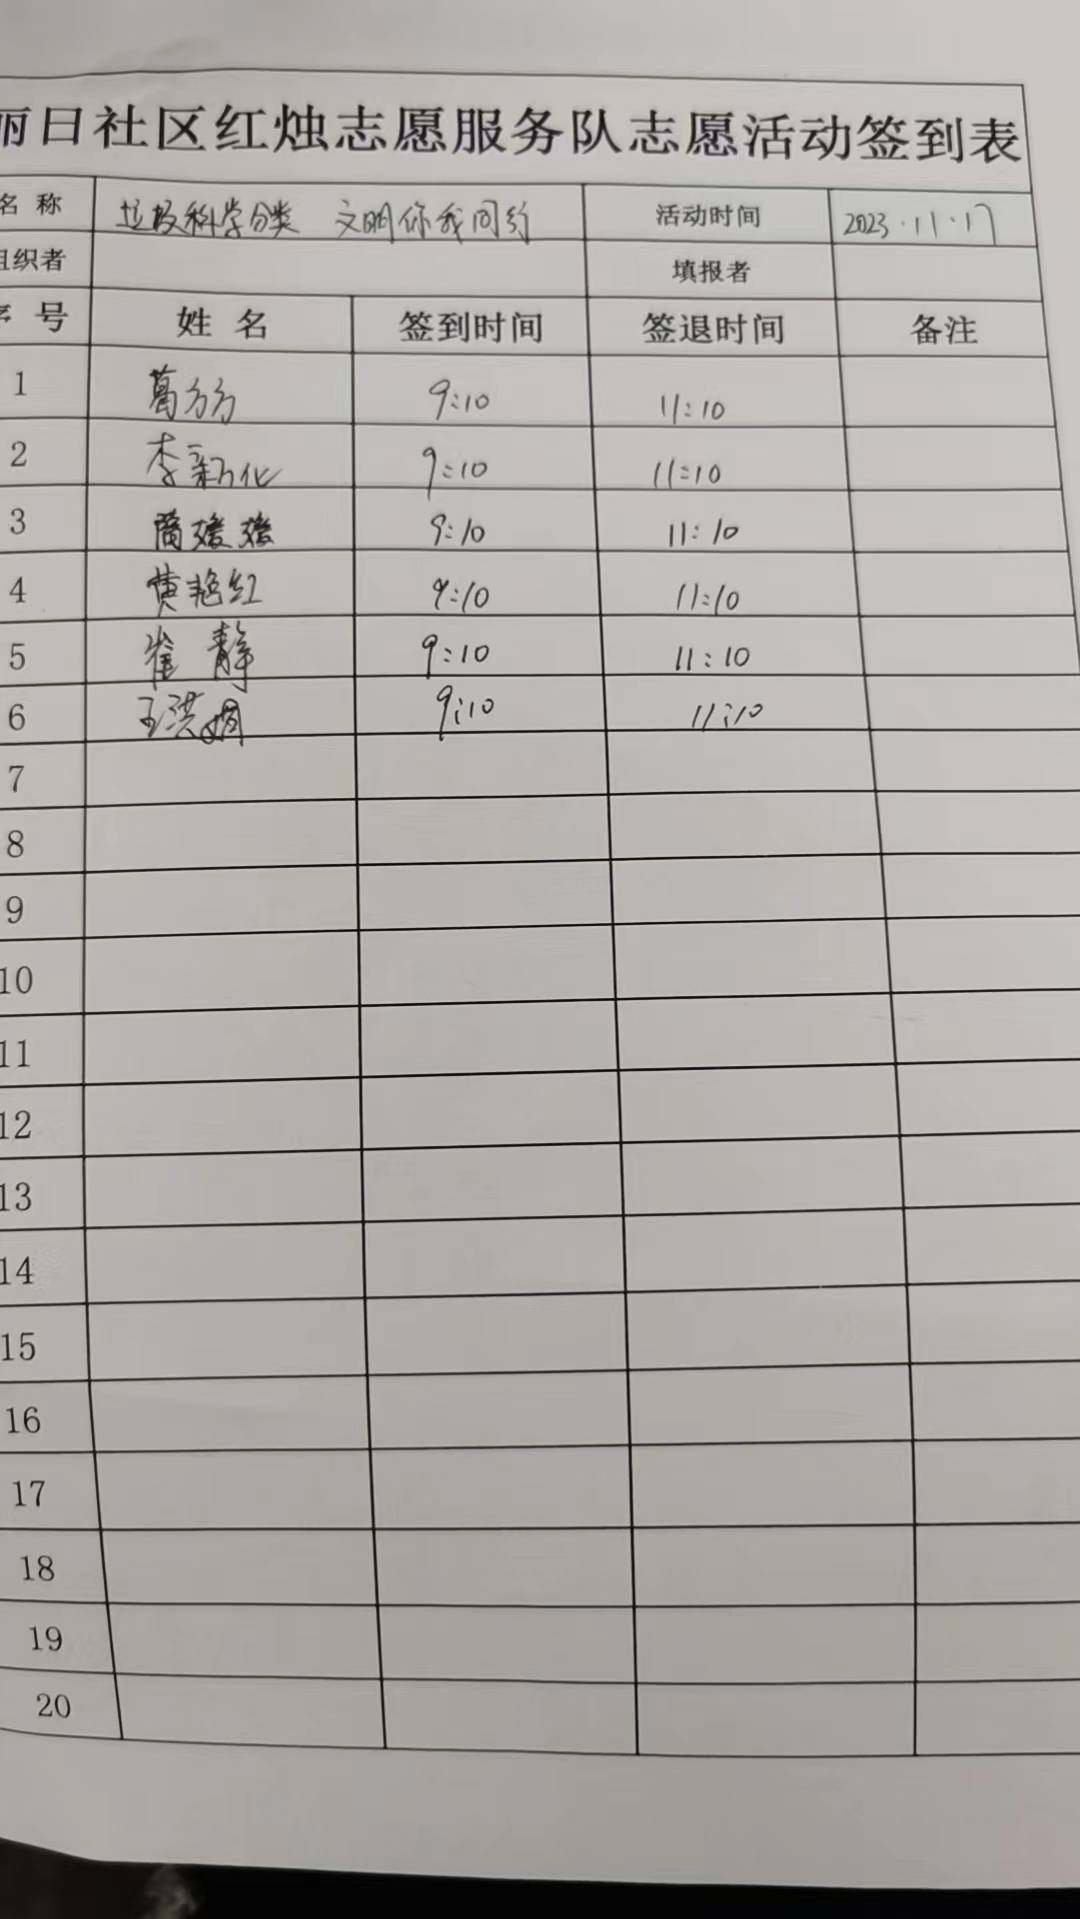 丽日社区红烛志愿服务队志愿活动签到表
名 称 垃圾科学分类 文明你我同行 活动时间 2023.11.17
组织者 填报者
序 号 姓 名 签到时间 签退时间 备注
1 葛方方 9:10 11:10
2 李新化 9:10 11:10
3 媛媛 9:10 11:10
4 黄艳红 9:10 11:10
5 崔 静 9:10 11:10
6 王洪娟 9:10 11:10
7
8
9
10
11
12
13
14
15
16
17
18
19
20